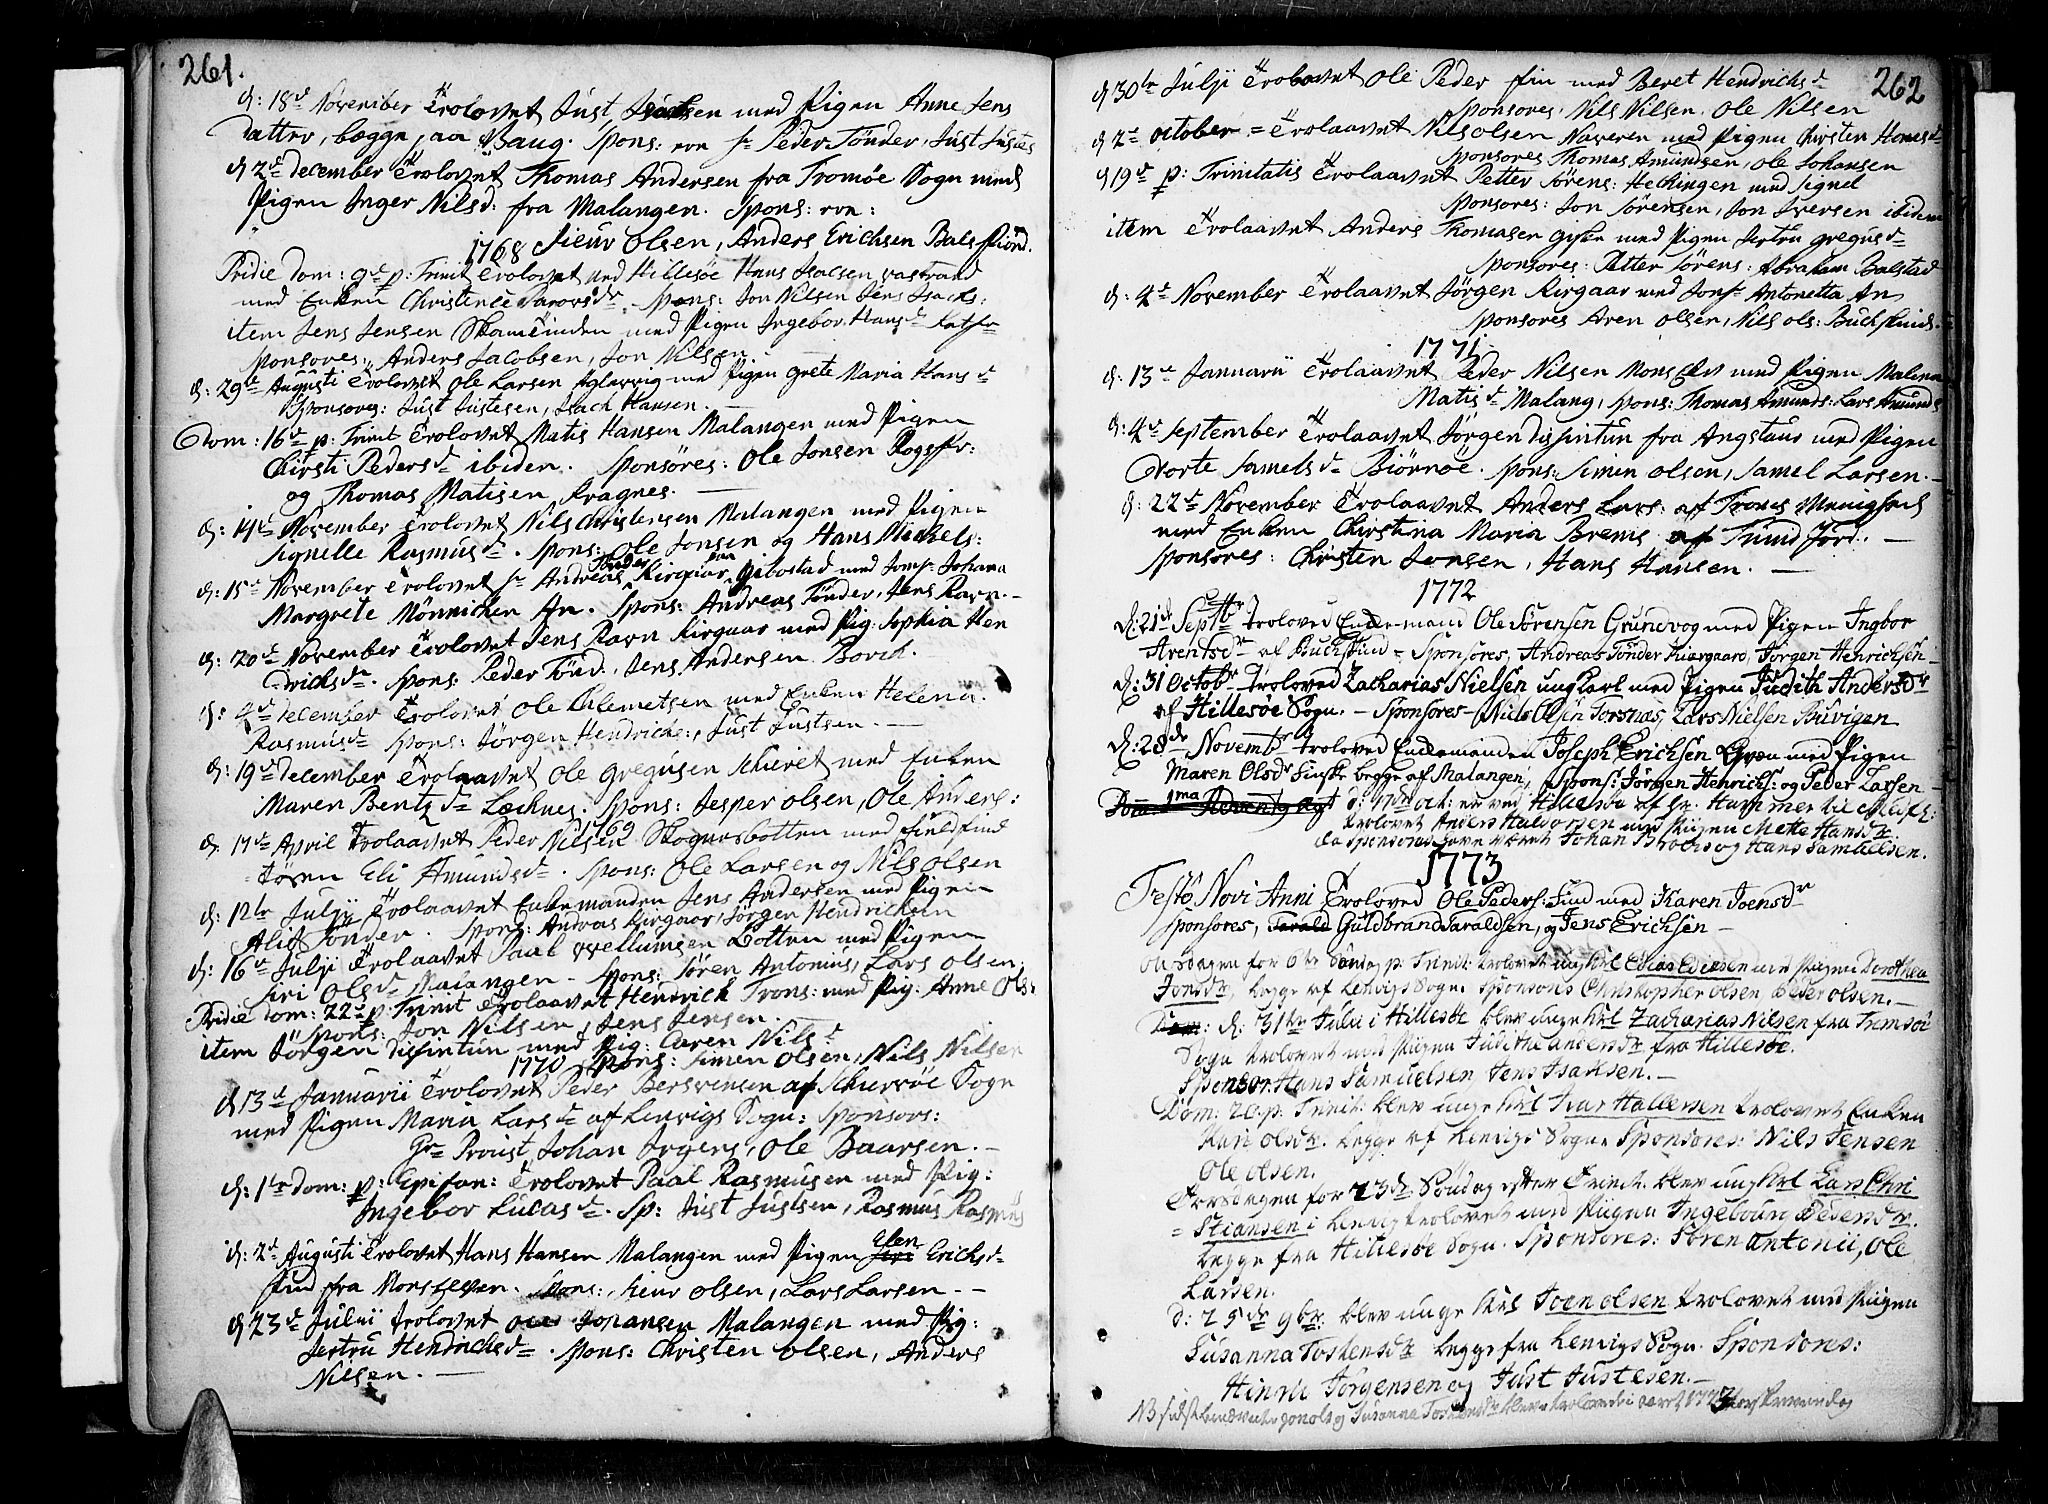 261.
d: 18de November Trolovet Just Isachsen med Pigen Anne Jens
datter, begge paa Baug. Spons: ere Sr Peder Tönder, Just Justes
d 2de december Trolovet Thomas Andersen fra Tromsöe Sogn med
Pigen Inger Nilsd: fra Malangen. Spons: ere:
1768 Sieur Olsen, Anders Erichsen Bals Fiord.
Pridie Dom: 9de p: Trinit Trolovet ved Hillesöe Hans Isacsen
med Enken Christence Spons: Jon Nilsen Jens Isachs:
item Jens Jensen med Pigen Ingebor Hansdr
Sponsores: Anders Jacobsen, Jon Nilsen.
d: 29de Augusti Trolovet Ole Larsen med Pigen Grete Maria Hansd
Sponsores: Just Justesen, Isach Hansen.
Dom: 16de p: Trinit Trolovet Matis Hansen Malangen med Pigen
Chirsti Pedersd ibiden. Sponsöres: Ole Jonsen
og Thomas Matisen Kragnes.
d: 14de November Trolovet Nils Christensen Malangen med Pigen
Signelle Rasmusd. Spons: Ole Jonsen og Hans Michels:
d: 15de November Trolovet Sr Andreas Tönder Kirgaar Gibostad med Jomfr Johana
Margrete Mönnichen An. Spons: Andreas Tönder, Jens Ravn.
d: 20de November Trolovet Jens Ravn Kirgaar med Pig: Sophia Hen
drichsdr. Spons: Peder Tönd:, Jens Andersen Borch.
d: 4de December Trolovet Ole Chlemetsen med Enken Helena
Rasmusd Spons: Jörgen Hendrichs:, Just Justsen.
d: 19de december Trolaavet Ole Gregusen med Enken
Maren Bentzd Lechnes. Spons: Jesper Olsen, Ole Anders:
1769
d: 17de April Trolaavet Peder Nilsen med
Eli Amundsd. Spons: Ole Larsen og Nils Olsen
d: 12te Julij Trolaavet Enkemanden Jens Andersen med Pigen
Alid Tönder. Spons: Andreas Kirgaar, Jörgen Hendrichsen
d: 16de Julji Trolaavet Paal Botten med Pigen
Siri Olsd Malangen. Spons: Sören Antonius, Lars Olsen.
Pridie Dom: 22de p: Trinit Trolaavet Hendrich Trons: med Pig: Anne Ols
Spons: Jon Nilsen, Jens Jensen.
item Jörgen Disfintun med Pig: Caren Nilsd
1770 Spons: Simen Olsen, Nils Nilsen
d 13de Januarii Trolovet Peder af Sogn
med Pigen Maria Larsd af Lenvigs Sogn: Sponsors:
Hr Proust Johan Irgens, Ole Baarsen.
d: 1te Dom: p: Epifan: Trolovet Paal Rasmusen med Pig:
Ingebor Lucasd. Sp: Just Justsen, Rasmus Rasmus
d: 2de Augusti Trolovet Hans Hansen Malangen med Pigen Elen Erichsd
Find fra Spons: Sieur Olsen, Lars Larsen.
d 23de Julii Trolovet Johansen Malangen med Pig:
Jertru Hendrichsd. Spons: Christen Olsen, Anders
Nilsen.
262
d 30te Julji Trolovet Ole Peder fin med Beret Hendrichsd
Sponsores, Nils Nilsen, Ole Nilsen
d 2de October = Trolaavet Nils Olsen med Pigen Chirsten
Sponsores Thomas Amundsen, Ole Johansen
d 19de p: Trinitatis Trolaavet Petter Sörens: med Signel
Sponsores: Jon Sörensen, Jon Iversen ibidem
item Trolaavet Anders Thomasen med Pigen Jertru Gregusd
Sponsores: Petter Sörens: Abraham Balstad
d: 4de November Trolaavet Jörgen Kirgaar med Jomfr Antonetta An
Sponsores Aren Olsen, Nils Ols: Buchskind.
1771
d: 13de Januarii Trolaavet Peder Nilsen med Pigen Malena
Matisd Malang, Spons: Thomas Amunds: Lars Amunds
d: 4de September Trolaavet Jörgen disfintun fra Angstaur med Pigen
Dorte Samelsd Biörnöe. Spons: Simen Olsen, Samel Larsen.
d: 22de November Trolaavet Anders Lars: af Menighed
med Enken Christina Maria Brems af
Sponsores: Christen Jonsen, Hans Hansen.
1772
d: 21de Septbr Troloved Enkemand Ole Sörensen Grundvog med Pigen Ingbor
Arentsdr af Buchskind = Sponsores, Andreas Tönder Kiergaard, Jörgen Henrichsen
d: 31 Octobr Troloved Zacharias Nielsen ungkarl med Pigen Judith Andersdr
af Hillesöe Sogn. Sponsores Niels Olsen Torsnæs, Lars Nielsen Buvigen
d: 28de Novembr troloved Enckemanden Joseph Erichsen med Pigen
Maren Olsdr Finske begge af Malangen, Spons: Jörgen Henrichs: og Peder Larsen
Dom: 1ma Advent d: 17de Oct: er ved Hillesöe af Hr. Hammer
trolovet Anders Haldorsen med Piigen Mette Hansdr.
da Sponsores have været Johan og Hans Samuelsen.
1773
Festo Novi Anni Troloved Ole Peders: Find med Karen Joensdr
Sponsores, Tarald Guldbrand Taraldsen, og Jens Erichsen
Onsdagen for 6te Söndag p: Trinit: trolovet ung Karl Elias Eliesen med Piigen Dorothea
Jonsdr, begge af Lenvigs Sogn. Sponsores Christopher Olsen, Peder Olsen.
Dom: d: 31te Julii i Hillesöe blev unge Karl Zacharias Nilsen fra Tromsöe
Sogn trolovet med Piigen Judithe Andersdr fra Hillesöe.
Sponsor: Hans Samuelsen, Jens Isaksen.
Dom: 20 p: Trinit: blev unge Karl Ivar Hallersen trolovet Enken
Kari Olsdr. begge af Lenvigs Sogn. Sponsores: Nils Jensen
Ole Olsen.
Torsdagen for 23de Söndag efter Trinit. blev ung Karl Lars Chri
=stiansen i Lenvig trolovet med Piigen Ingebour Pedersdr.
begge fra Hillesöe Sogn. Sponsores: Sören Antonii, Ole
Larsen.
d: 25de 9br: blev unge Karl Joen Olsen trolovet med Piigen
Susanna Tostensdr begge fra Lenvigs Sogn. Sponsores:
Hinric Jörgensen og Just Justesen.
NB sidst benævnte Jon Ols og Susanna Tostensdr bleve trolovede i aaret 1773